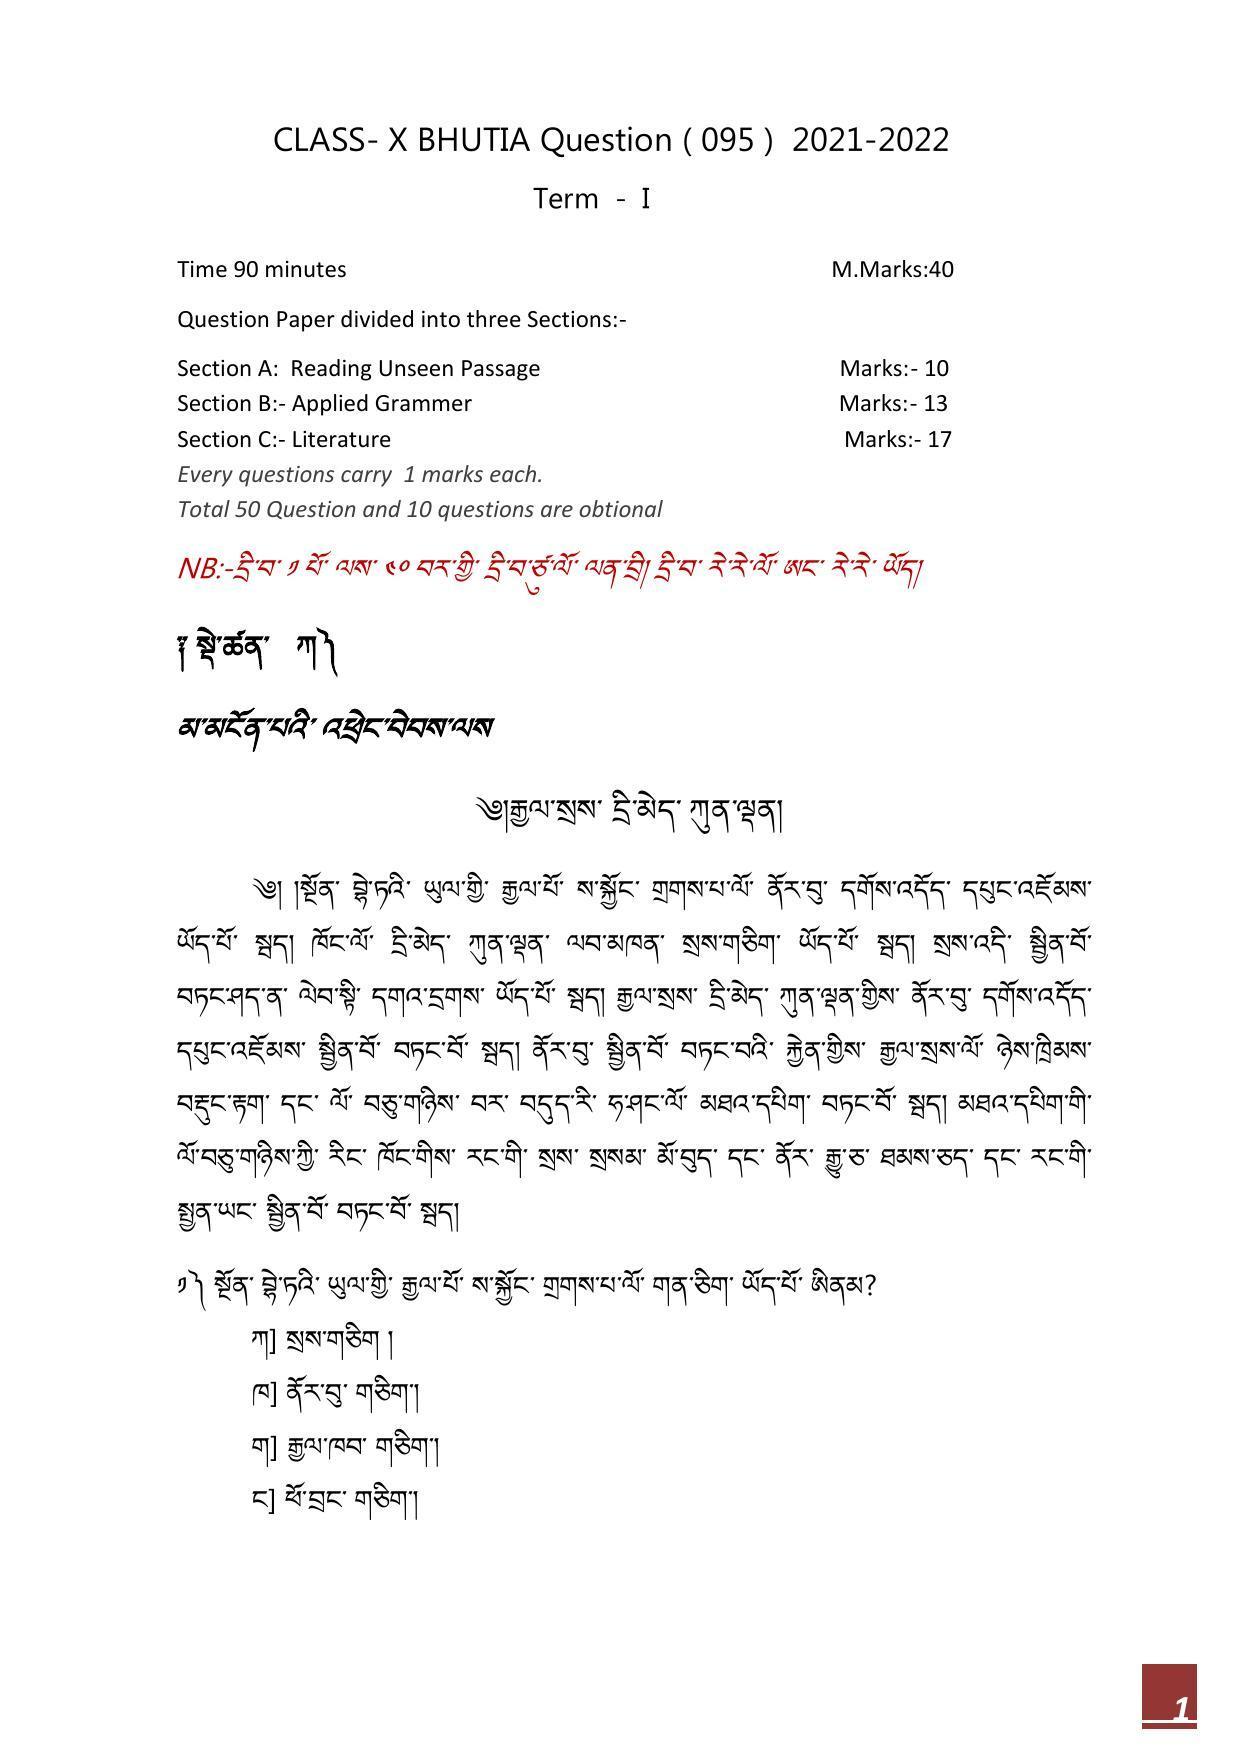 CLASS- X BHUTIA Question ( 095 )  2021-2022
Term  -  I
Time 90 minutes M.Marks:40
Question Paper divided into three Sections:-
Section A:  Reading Unseen Passage Marks:- 10
Section B:- Applied Grammer Marks:- 13
Section C:- Literature Marks:- 17
Every questions carry  1 marks each.
Total 50 Question and 10 questions are obtional
NB:-དྲི་བ་ ༡ པོ་ ལས་ ༥༠ བར་གྱི་ དྲི་བ་ཙུ་ལོ་ ལན་བྲི། དྲི་བ་ རེ་རེ་ལོ་ ཨང་ རེ་རེ་ ཡོད།
སྡེ་ཚན་ ཀ༽
མ་མངོན་པའི་ འཕྲེང་བེབས་ལས
༄།རྒྱལ་སྲས་ དྲི་མེད་ ཀུན་ལྡན།
༄། །སྔོན་ བྷེ་ཏའི་ ཡུལ་གྱི་ རྒྱལ་པོ་ ས་སྐྱོང་ གྲགས་པ་ལོ་ ནོར་བུ་ དགོས་འདོད་ དཔུང་འཇོམས་
ཡོད་པོ་ སྦད། ཁོང་ལོ་ དྲི་མེད་ ཀུན་ལྡན་ ལབ་མཁན་ སྲས་གཅིག་ ཡོད་པོ་ སྦད། སྲས་འདི་ སྦྱིན་བོ་
བཏང་ཤད་ན་ ལེབ་སྟི་ དགའ་དྲགས་ ཡོད་པོ་ སྦད། རྒྱལ་སྲས་ དྲི་མེད་ ཀུན་ལྡན་གྱིས་ ནོར་བུ་ དགོས་འདོད་
དཔུང་འཇོམས་ སྦྱིན་བོ་ བཏང་བོ་ སྦད། ནོར་བུ་ སྦྱིན་བོ་ བཏང་བའི་ རྐྱེན་གྱིས་ རྒྱལ་སྲས་ལོ་ ཉེས་ཁྲིམས་
བརྡུང་རྟག་ དང་ ལོ་ བཅུ་གཉིས་ བར་ བདུད་རི་ ཧ་ཤང་ལོ་ མཐའ་དཔིག་ བཏང་བོ་ སྦད། མཐའ་དཔིག་གི་
ལོ་བཅུ་གཉིས་ཀྱི་ རིང་ ཁོང་གིས་ རང་གི་ སྲས་ སྲསམ་ མོ་བུད་ དང་ ནོར་ རྒྱུ་ཅ་ ཐམས་ཅད་ དང་ རང་གི་
སྤྱན་ཡང་ སྦྱིན་བོ་ བཏང་བོ་ སྦད།
༡༽ སྔོན་ བྷེ་ཏའི་ ཡུལ་གྱི་ རྒྱལ་པོ་ ས་སྐྱོང་ གྲགས་པ་ལོ་ གན་ཅིག་ ཡོད་པོ་ ཨིནམ?
ཀ] སྲས་གཅིག །
ཁ] ནོར་བུ་ གཅིག་།
ག] རྒྱལ་ཁབ་ གཅིག་།
ང] ཕོ་བྲང་ གཅིག་།
1